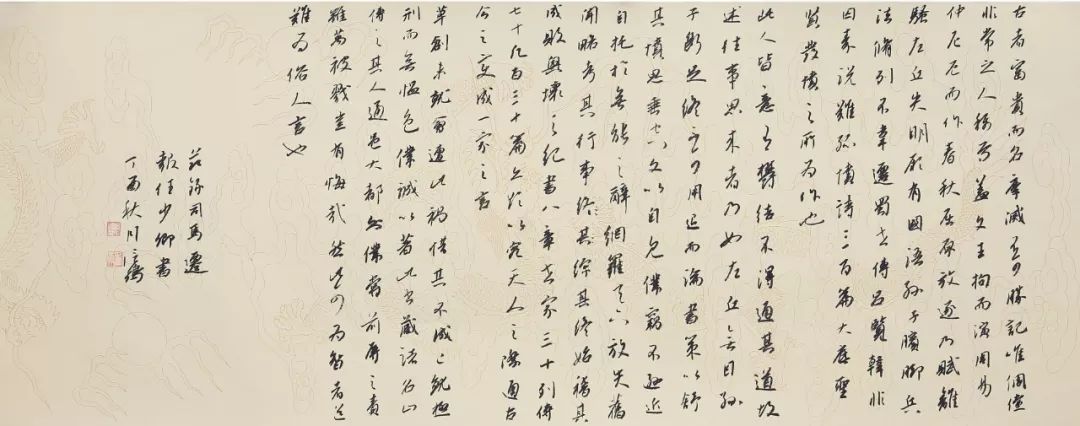 古者富貴而名摩滅不可勝記唯倜儻
非常之人稱焉蓋文王拘而演周易
仲尼厄而作春秋屈原放逐乃賦離
騷左丘失明厥有國語孫子臏腳兵
法脩列不韋遷蜀世傳呂覽韓非
囚秦說難孤憤詩三百篇大底聖
賢發憤之所為作也
此人皆意有鬱結不得通其道故
述往事思來者乃如左丘無目孫
子斷足終不可用退而論書策以舒
其憤思垂空文以自見僕竊不遜近
自托於無能之辭網羅天下放失舊
聞略考其行事終其綜其終始稽其
成敗興壞之紀書八章世家三十列傳
七十凡百三十篇亦欲以究天人之際通古
今之變成一家之言
草創未就會遭此禍惜其不成已就極
刑而無慍色僕誠以著此書藏諸名山
傳之其人通邑大都則僕償前辱之責
雖萬被戮豈有悔哉然此可為智者道
難為俗人言也
節錄司馬遷
報任少卿書
丁酉秋月